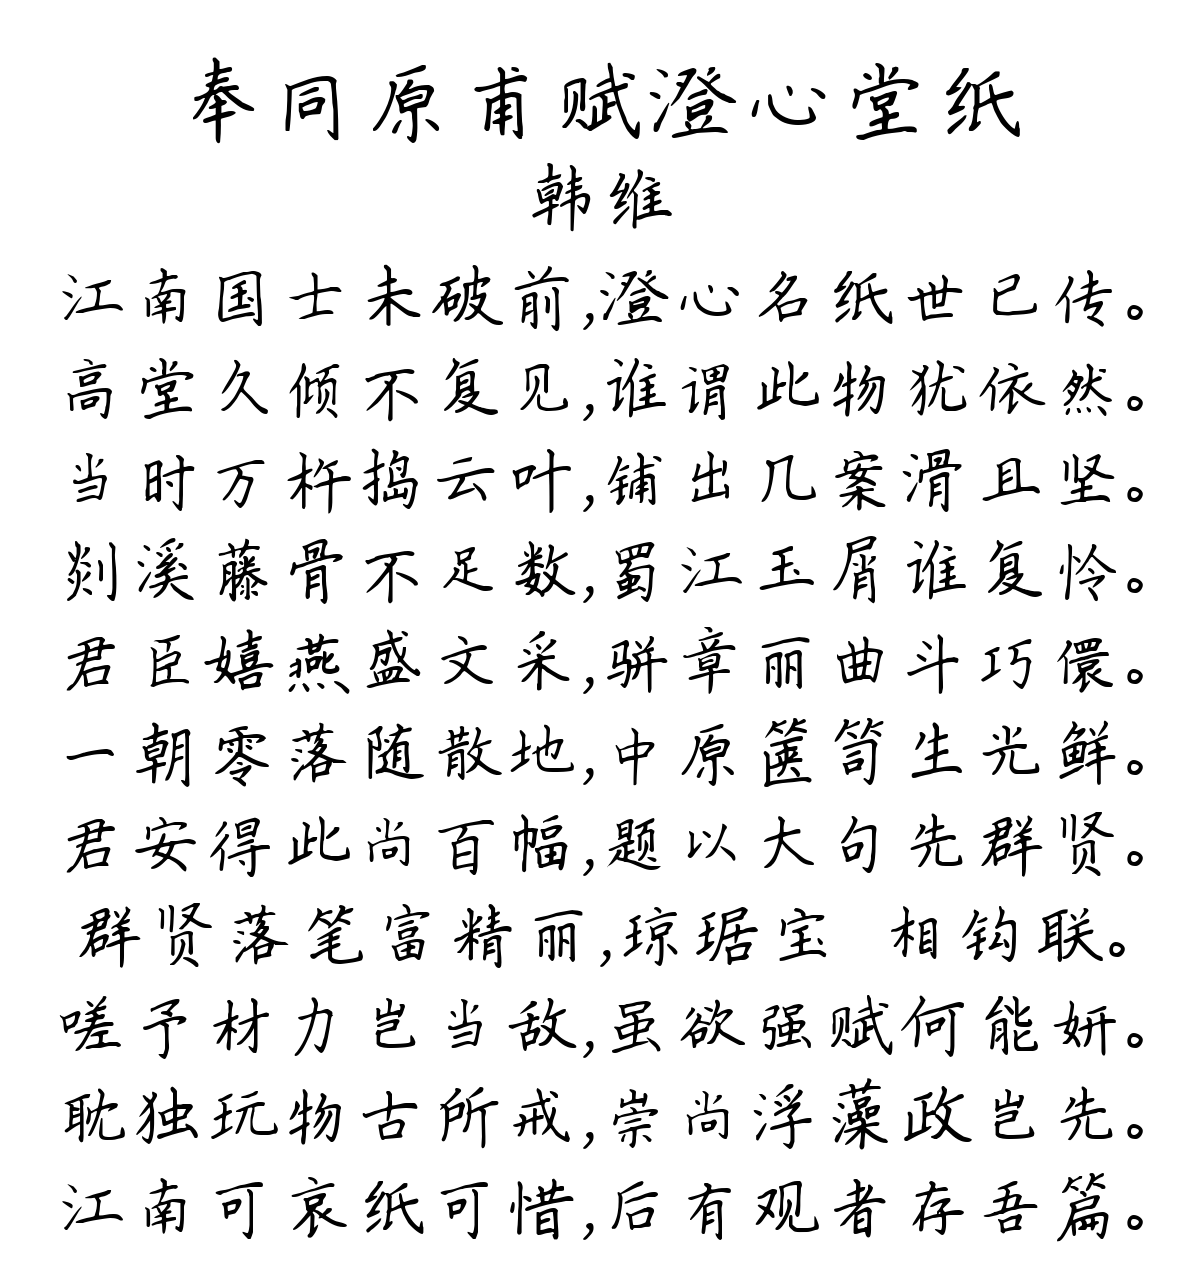 奉同原甫赋澄心堂纸
韩维
江南国士未破前,澄心名纸世已传。
高堂久倾不复见,谁谓此物犹依然。
当时万杵捣云叶,铺出几案滑且坚。
剡溪藤骨不足数,蜀江玉屑谁复怜。
君臣嬉燕盛文采,骈章丽曲斗巧儇。
一朝零落随散地,中原箧笥生光鲜。
君安得此尚百幅,题以大句先群贤。
群贤落笔富精丽,琼琚宝 相钩联。
嗟予材力岂当敌,虽欲强赋何能妍。
耽独玩物古所戒,崇尚浮藻政岂先。
江南可哀纸可惜,后有观者存吾篇。